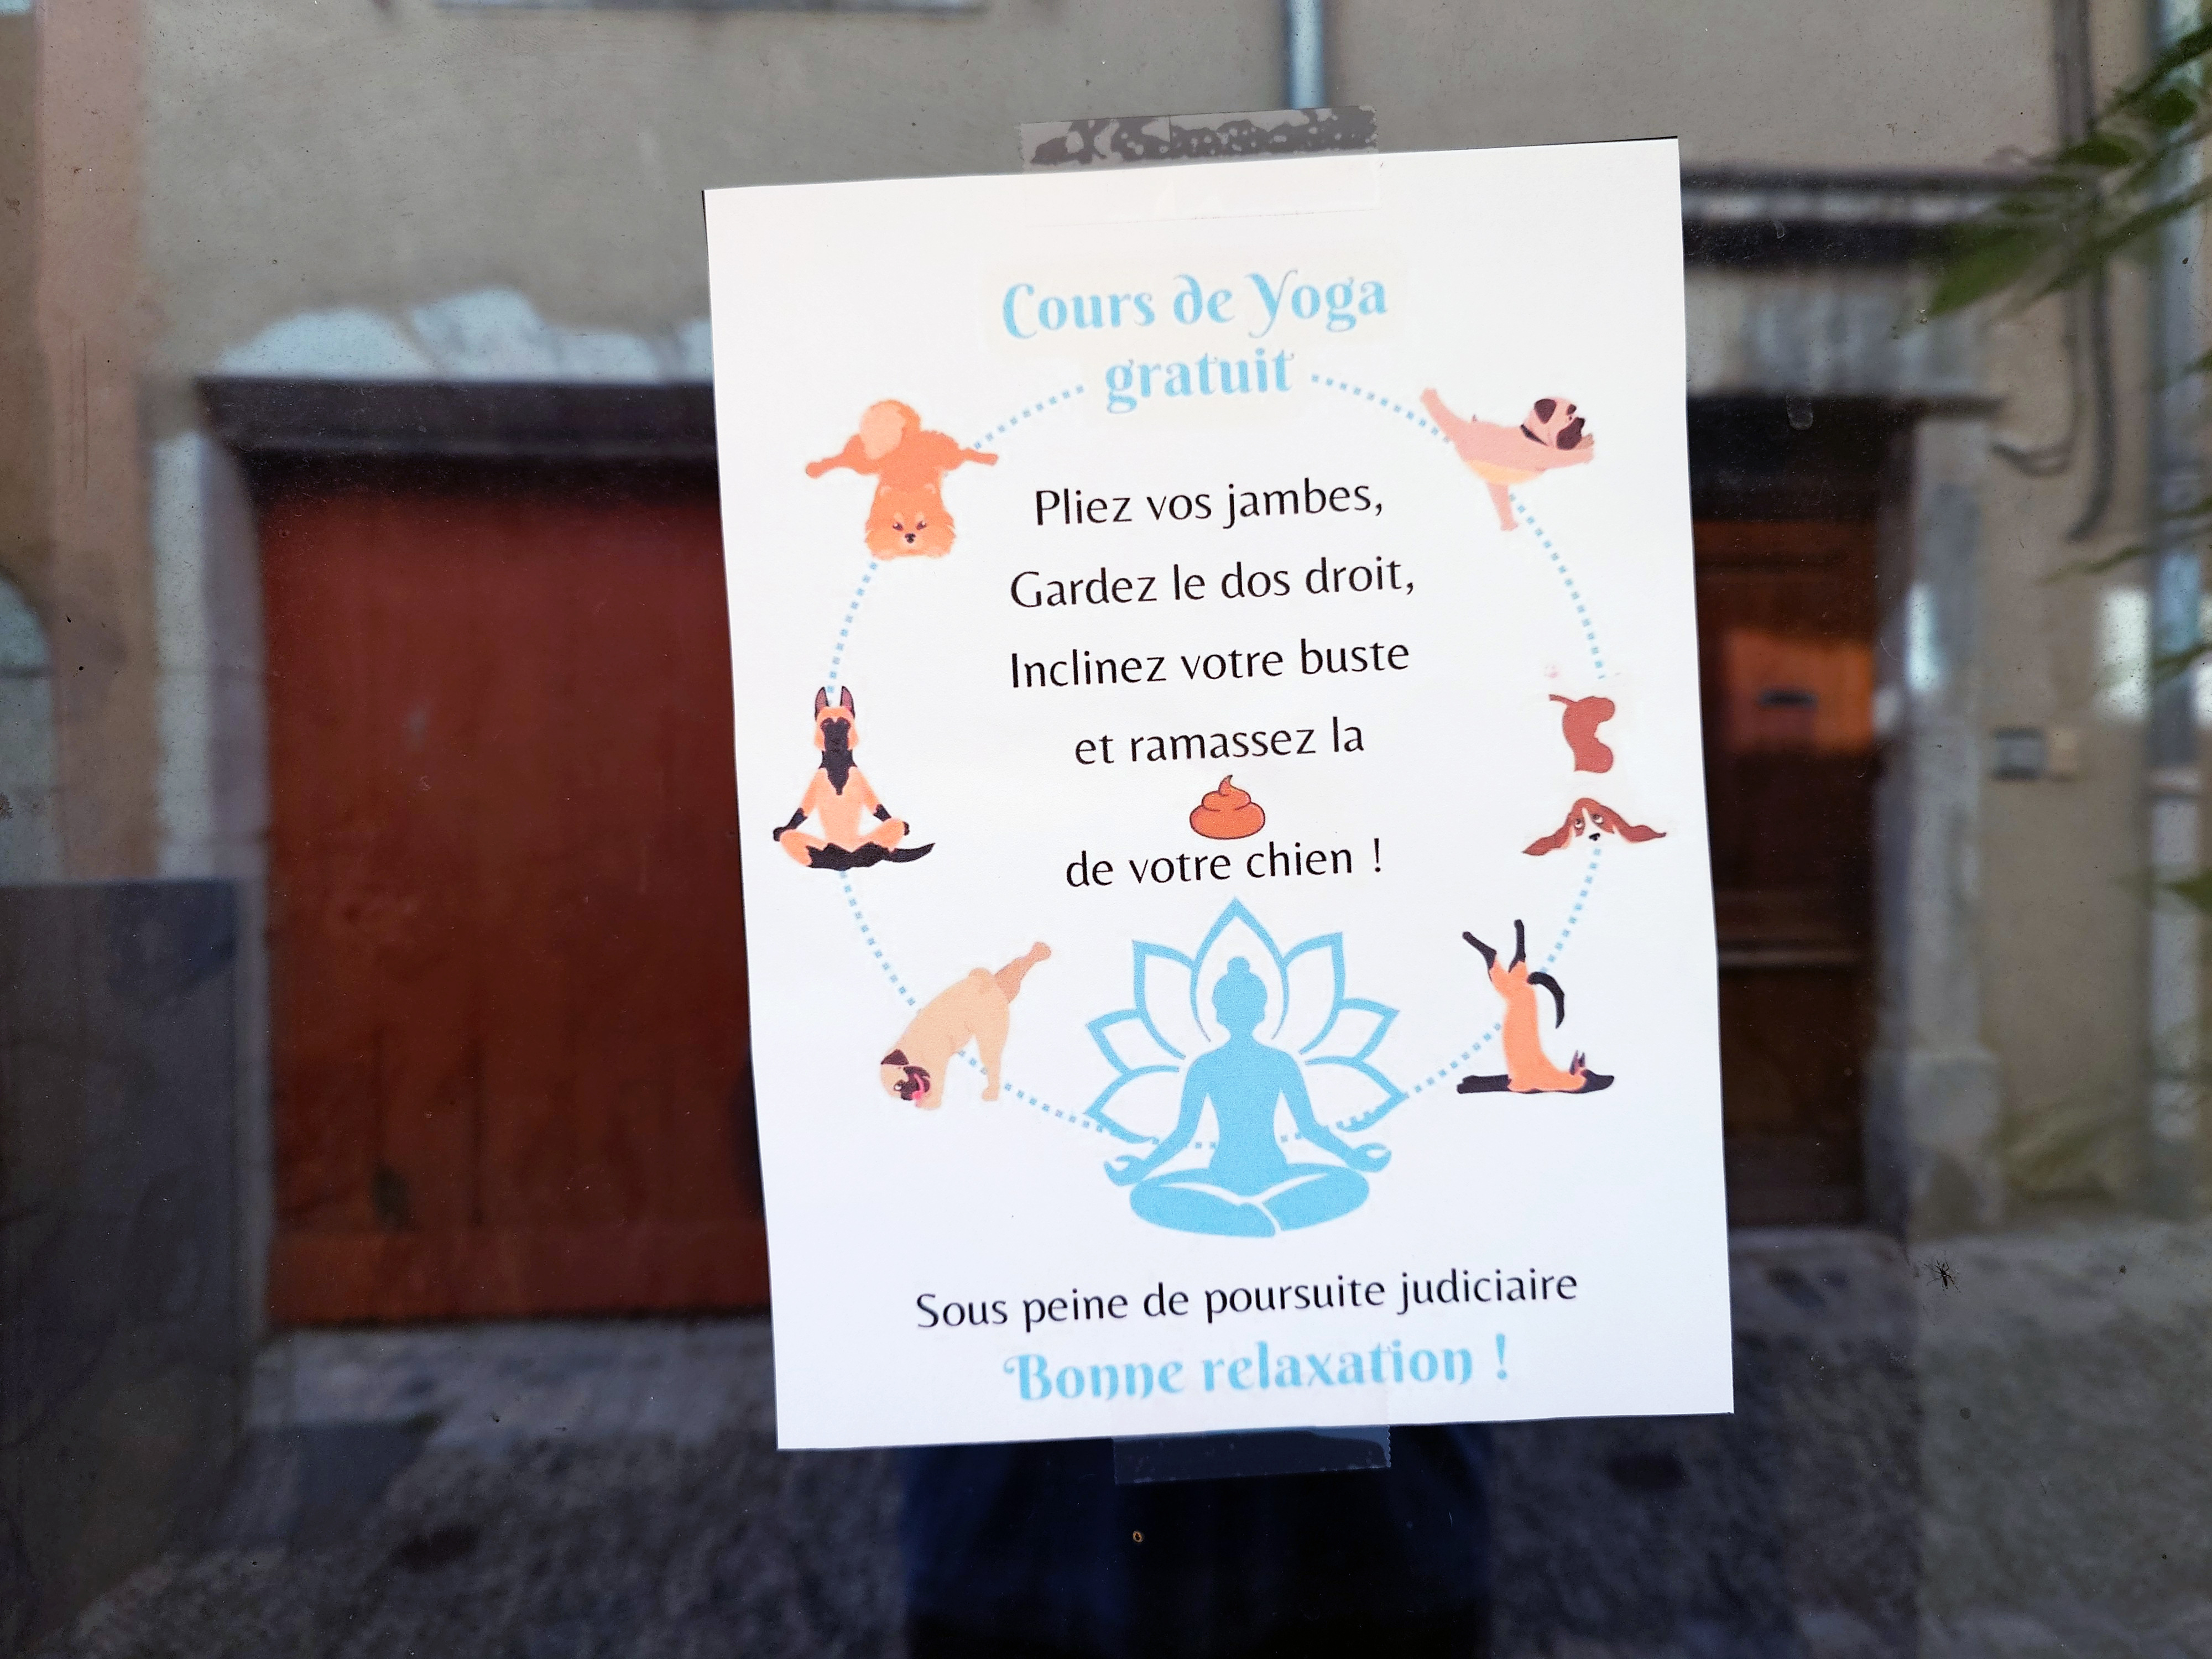 Cours de Yoga
gratuit
Pliez vos jambes,
Gardez le dos droit,
Inclinez votre buste
et ramassez la
de votre chien !
Sous peine de poursuite judiciaire
Bonne relaxation !